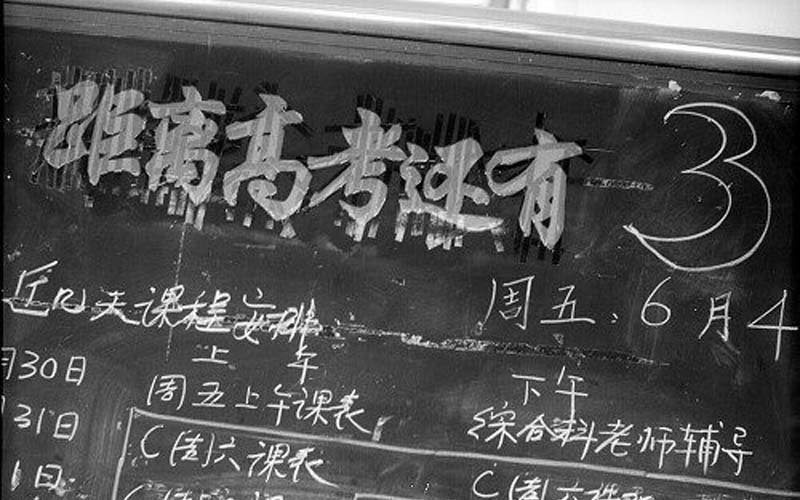 距离高考还有 3
近几天课程安排
周五:6月4
上午
下午
月30日 周五上午课表 综合科老师辅导
31日 (周六课表
1日 (周六